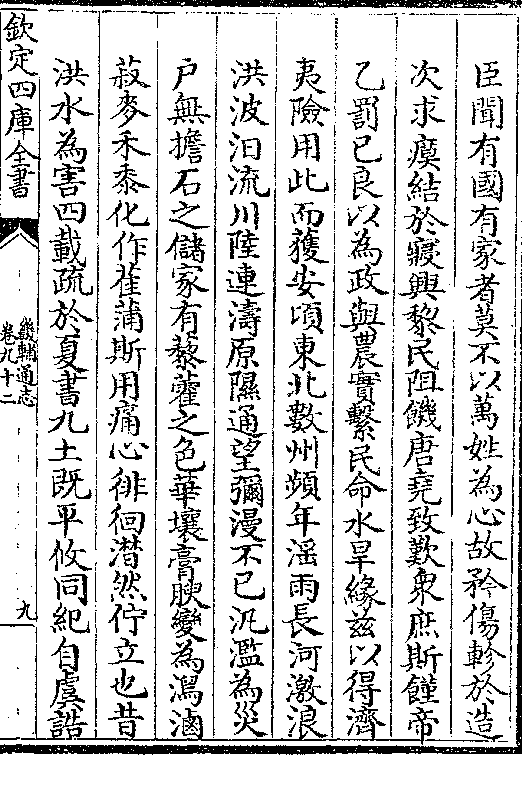 臣聞有國有家者莫不以萬姓為心故矜傷軫於造
次求瘼結於寢興黎民阻饑唐堯致歎衆庶斯饉帝
乙罰已良以為政與農實繫民命水旱緣兹以得濟
夷險用此而獲安頃東北數州頻年滛雨長河激浪
洪波汨流川陸連濤原隰通望彌漫不已汎濫為災
户無擔石之儲家有藜藿之色華壤膏腴變為潟滷
菽麥禾黍化作萑蒲斯用痛心徘徊潸然佇立也昔
洪水為害四載疏於夏書九土既平攸同紀自虞誥
欽定四庫全書
畿輔通志
卷九十二
九